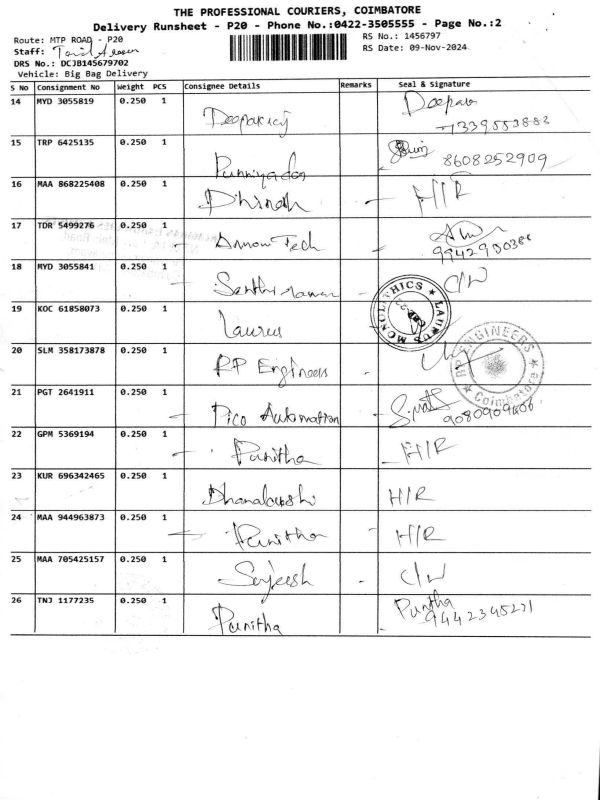 THE PROFESSIONAL COURIERS, COIMBATORE
Delivery Runsheet - P20 - Phone No.:0422-3505555 - Page No.:2
Route: MTP ROAD - P20
RS No.: 1456797
Staff:
RS Date: 09-Nov-2024
DRS No.: DCJB145679702
Vehicle: Big Bag Delivery
S No Consignment No Weight PCS Consignee Details Remarks Seal & Signature
14 MYD 3055819 0.250 1 Deepa
15 TRP 6425135 0.250 1 8608252909
16 MAA 868225408 0.250 1 H/R
17 TDR 5499276 0.250 1 Arrow Tech
18 MYD 3055841 0.250 1 C/W
19 KOC 61858073 0.250 1 Laurus LAURUS MONOLITHICS
20 SLM 358173878 0.250 1 RP Engineers RP ENGINEERS Coimbatore
21 PGT 2641911 0.250 1 Pico Automation
22 GPM 5369194 0.250 1 Punitha H/R
23 KUR 696342465 0.250 1 H/R
24 MAA 944963873 0.250 1 Punitha H/R
25 MAA 705425157 0.250 1 Sujeesh C/W
26 TNJ 1177235 0.250 1 Punitha Punitha